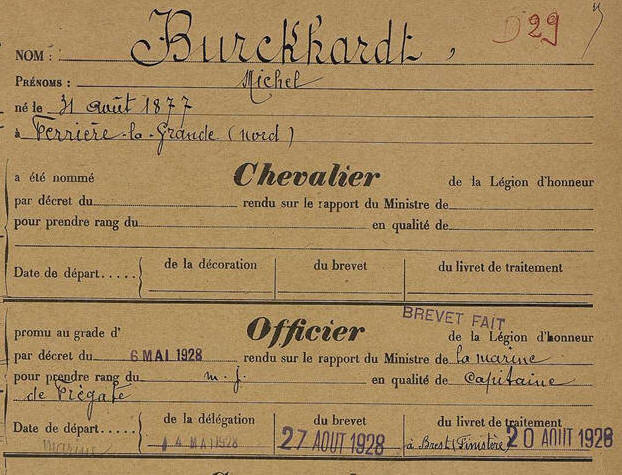 D 29
NOM : Burckhardt,
PRÉNOMS : Michel
né le 31 août 1877
à Ferrière-la-Grande (Nord)
a été nommé Chevalier de la Légion d'honneur
par décret du rendu sur le rapport du Ministre de
pour prendre rang du en qualité de
Date de départ..... de la décoration du brevet du livret de traitement
BREVET FAIT
promu au grade d' Officier de la Légion d'honneur
par décret du 6 MAI 1928 rendu sur le rapport du Ministre de la marine
pour prendre rang du m. j. en qualité de Capitaine
de Frégate
Date de départ..... de la délégation du brevet du livret de traitement
marine 14 MAI 1928 27 AOUT 1928 à Brest (Finistère) 20 AOUT 1928